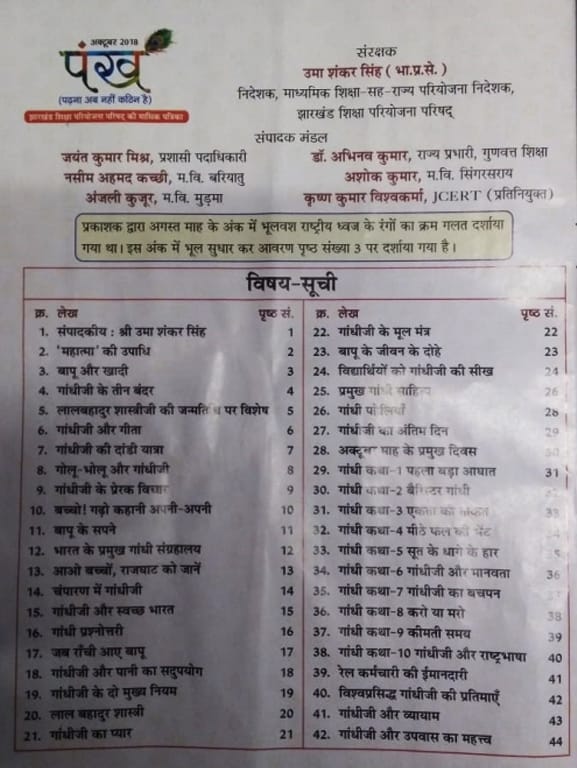 अक्टूबर 2018
पंख
(पढ़ना अब नहीं कठिन है)
झारखंड शिक्षा परियोजना परिषद् की मासिक पत्रिका
संरक्षक
उमा शंकर सिंह (भा.प्र.से.)
निदेशक, माध्यमिक शिक्षा-सह-राज्य परियोजना निदेशक,
झारखंड शिक्षा परियोजना परिषद्
संपादक मंडल
जयंत कुमार मिश्र, प्रशासी पदाधिकारी
नसीम अहमद कच्छी, म.वि. बरियातु
अंजली कुजूर, म.वि. मुड़मा
डॉ. अभिनव कुमार, राज्य प्रभारी, गुणवत्त शिक्षा
अशोक कुमार, म.वि. सिंगरसराय
कृष्ण कुमार विश्वकर्मा, JCERT (प्रतिनियुक्त)
प्रकाशक द्वारा अगस्त माह के अंक में भूलवश राष्ट्रीय ध्वज के रंगों का क्रम गलत दर्शाया
गया था। इस अंक में भूल सुधार कर आवरण पृष्ठ संख्या 3 पर दर्शाया गया है।
विषय-सूची
क्र. लेख पृष्ठ सं.
1. संपादकीय : श्री उमा शंकर सिंह 1
2. 'महात्मा' की उपाधि 2
3. बापू और खादी 3
4. गांधीजी के तीन बंदर 4
5. लालबहादुर शास्त्रीजी की जन्मतिथि पर विशेष 5
6. गांधीजी और गीता 6
7. गांधीजी की दांडी यात्रा 7
8. गोलू-भोलू और गांधीजी 8
9. गांधीजी के प्रेरक विचार 9
10. बच्चो! गढ़ो कहानी अपनी-अपनी 10
11. बापू के सपने 11
12. भारत के प्रमुख गांधी संग्रहालय 12
13. आओ बच्चों, राजघाट को जानें 13
14. चंपारण में गांधीजी 14
15. गांधीजी और स्वच्छ भारत 15
16. गांधी प्रश्नोत्तरी 16
17. जब राँची आए बापू 17
18. गांधीजी और पानी का सदुपयोग 18
19. गांधीजी के दो मुख्य नियम 19
20. लाल बहादुर शास्त्री 20
21. गांधीजी का प्यार 21
क्र. लेख पृष्ठ सं.
22. गांधीजी के मूल मंत्र 22
23. बापू के जीवन के दोहे 23
24. विद्यार्थियों को गांधीजी की सीख 24
25. प्रमुख गांधी साहित्य 26
26. गांधी 28
27. गांधीजी का अंतिम दिन 29
28. अक्टूबर माह के प्रमुख दिवस 30
29. गांधी कथा-1 पहला बड़ा आघात 31
30. गांधी कथा-2 बैरिस्टर गांधी
31. गांधी कथा-3 एकता की ताकत 33
32. गांधी कथा-4 मीठे फल की भेंट
33. गांधी कथा-5 सूत के धागे के हार
34. गांधी कथा-6 गांधीजी और मानवता 36
35. गांधी कथा-7 गांधीजी का बचपन
36. गांधी कथा-8 करो या मरो 38
37. गांधी कथा-9 कीमती समय 39
38. गांधी कथा-10 गांधीजी और राष्ट्रभाषा 40
39. रेल कर्मचारी की ईमानदारी 41
40. विश्वप्रसिद्ध गांधीजी की प्रतिमाएँ 42
41. गांधीजी और व्यायाम 43
42. गांधीजी और उपवास का महत्त्व 44